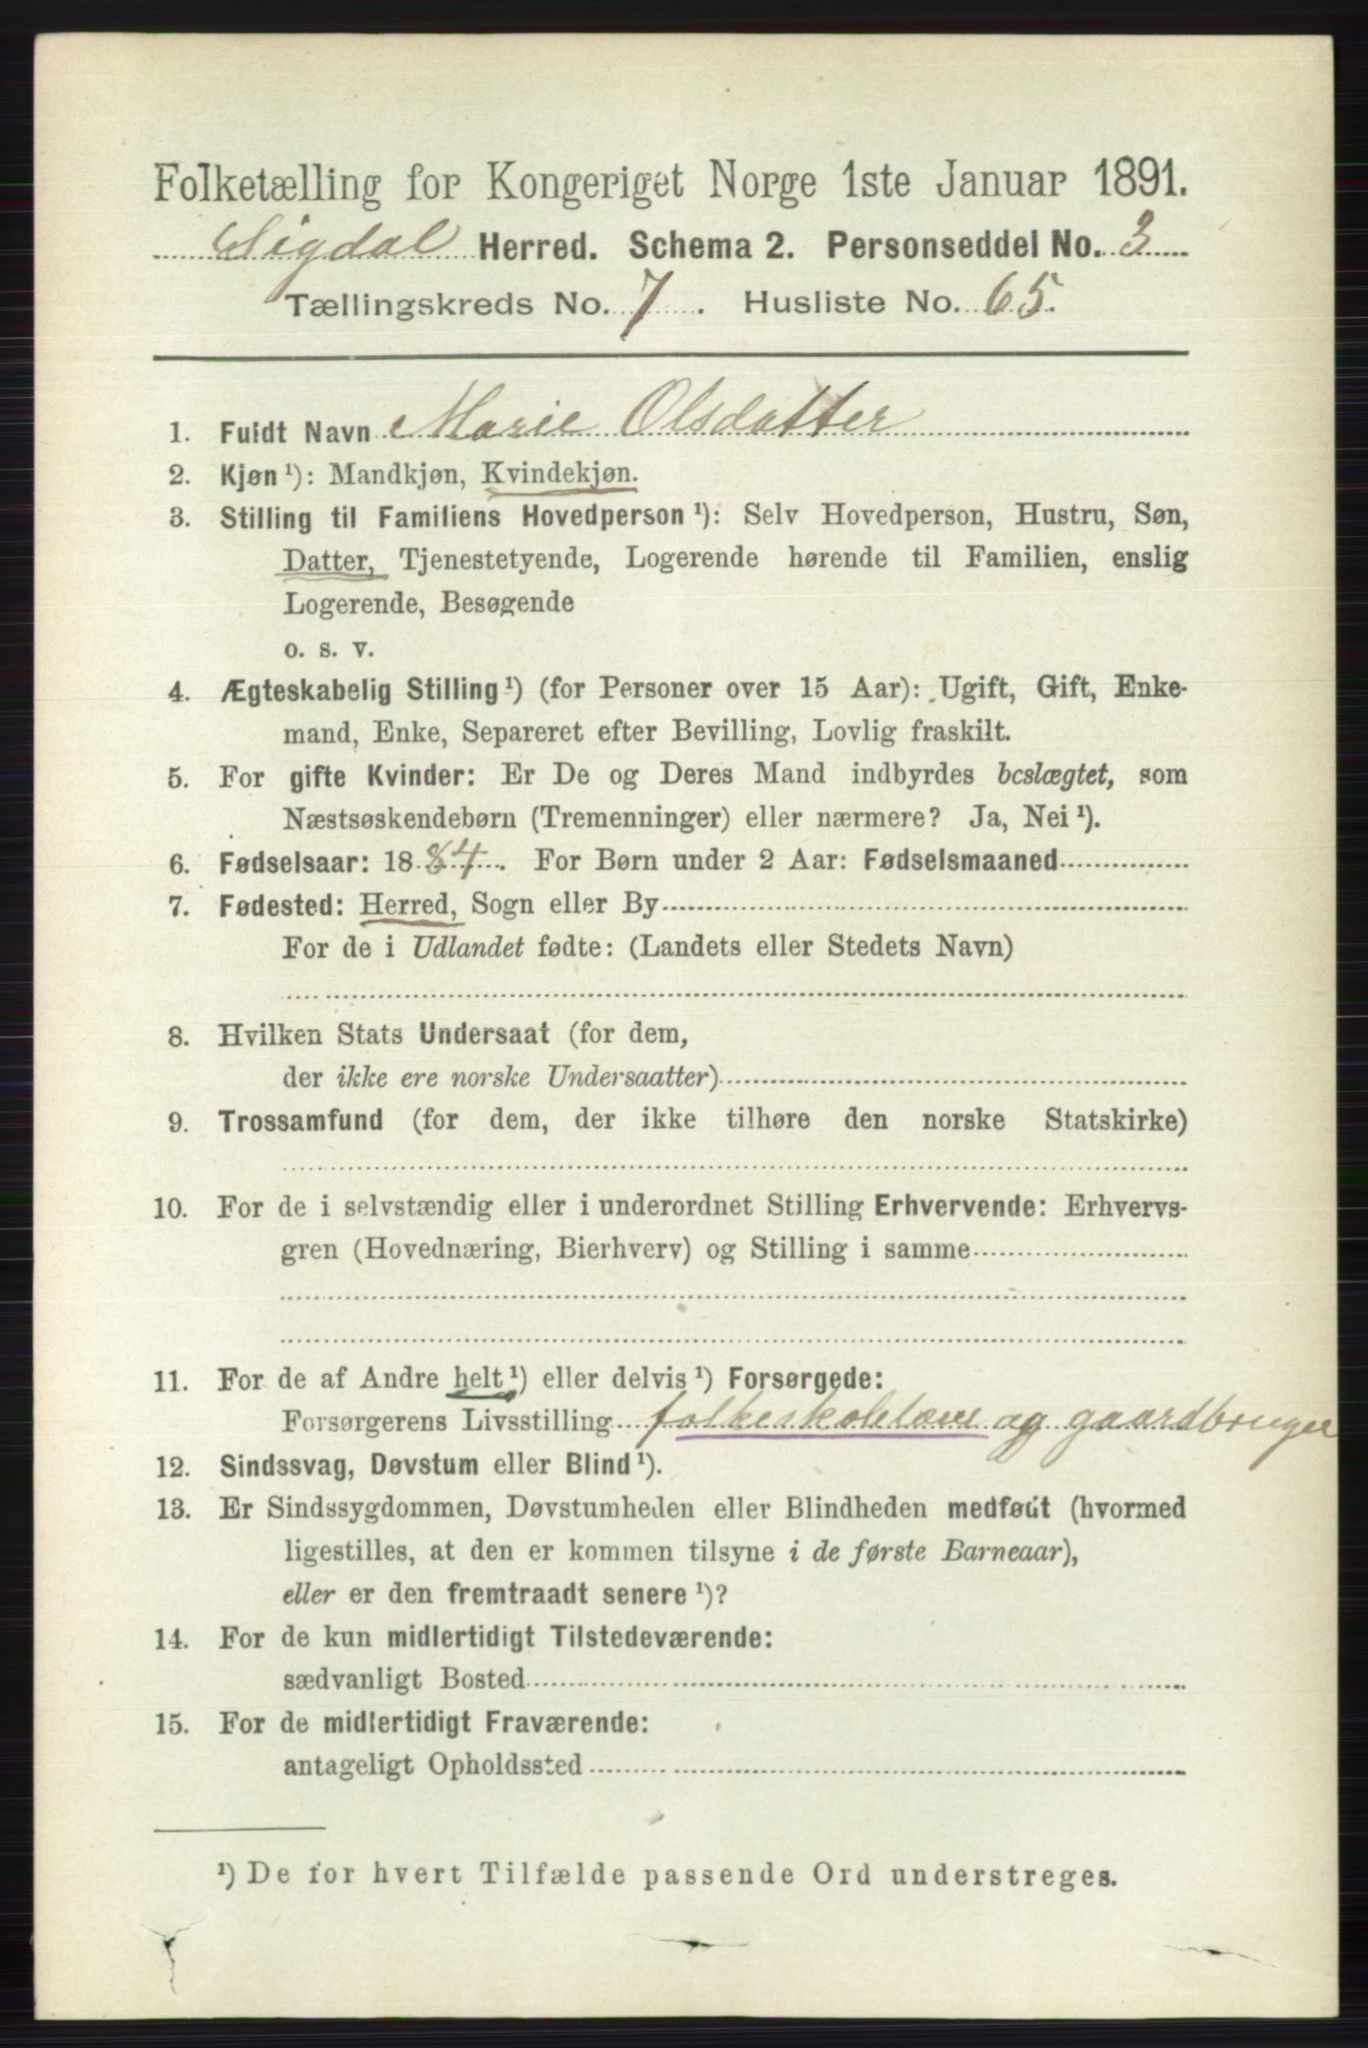 Folketælling for Kongeriget Norge 1ste Januar 1891.
Sigdal Herred. Schema 2. Personseddel No. 3
Tællingskreds No. 7. Husliste No. 65.
1. Fuldt Navn Marie Olsdatter
2. Kjøn ¹): Mandkjøn, Kvindekjøn.
3. Stilling til Familiens Hovedperson ¹): Selv Hovedperson, Hustru, Søn,
Datter, Tjenestetyende, Logerende hørende til Familien, enslig
Logerende, Besøgende
o. s. v.
4. Ægteskabelig Stilling ¹) (for Personer over 15 Aar): Ugift, Gift, Enke-
mand, Enke, Separeret efter Bevilling, Lovlig fraskilt.
5. For gifte Kvinder: Er De og Deres Mand indbyrdes beslægtet, som
Næstsøskendebørn (Tremenninger) eller nærmere? Ja, Nei ¹).
6. Fødselsaar: 1884. For Børn under 2 Aar: Fødselsmaaned
7. Fødested: Herred, Sogn eller By
For de i Udlandet fødte: (Landets eller Stedets Navn)
8. Hvilken Stats Undersaat (for dem,
der ikke ere norske Undersaatter)
9. Trossamfund (for dem, der ikke tilhøre den norske Statskirke)
10. For de i selvstændig eller i underordnet Stilling Erhvervende: Erhvervs-
gren (Hovednæring, Bierhverv) og Stilling i samme
11. For de af Andre helt ¹) eller delvis ¹) Forsørgede:
Forsørgerens Livsstilling folkeskolelærer og gaardbruger
12. Sindssvag, Døvstum eller Blind ¹).
13. Er Sindssygdommen, Døvstumheden eller Blindheden medfødt (hvormed
ligestilles, at den er kommen tilsyne i de første Barneaar),
eller er den fremtraadt senere ¹)?
14. For de kun midlertidigt Tilstedeværende:
sædvanligt Bosted
15. For de midlertidigt Fraværende:
antageligt Opholdssted
¹) De for hvert Tilfælde passende Ord understreges.